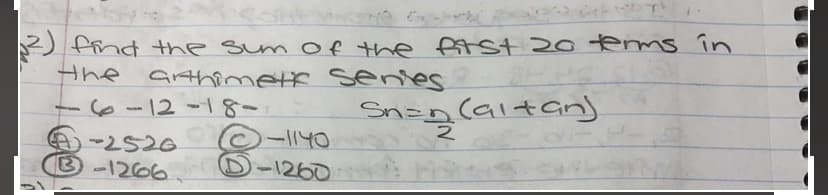 2) find the sum of the first 20 terms in
the arthimetk series
-6-12-18-
Sn=n/2 (a1+an)
A -2520 C -1140
B -1266 D -1260